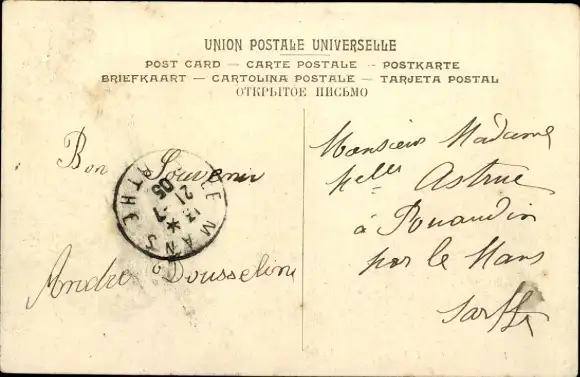 UNION POSTALE UNIVERSELLE
POST CARD — CARTE POSTALE — POSTKARTE
BRIEFKAART — CARTOLINA POSTALE — TARJETA POSTAL
ОТКРЫТОЕ ПИСЬМО
Bon Souvenir
André Dousseline
LE MANS
SARTHE
13 * 7
21
05
Monsieur Madame
Melles Astrue
à Pouandin
par le Mans
Sarthe